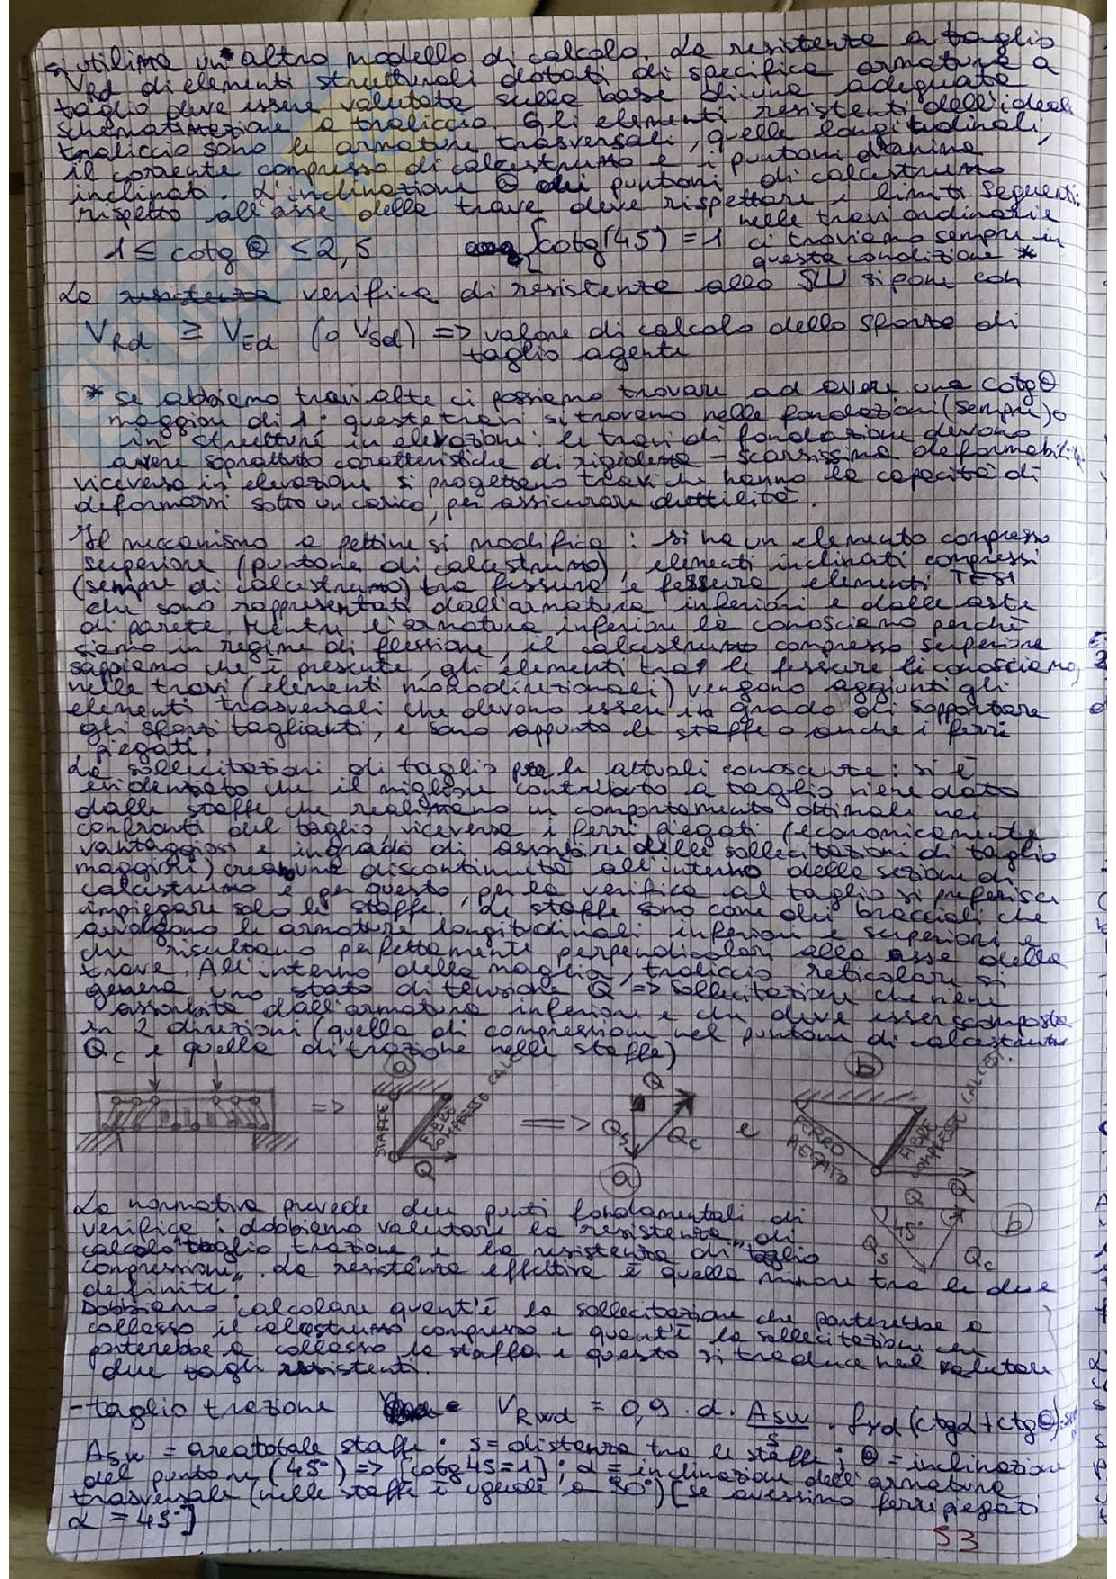 si utilizza un altro modello di calcolo. La resistenza a taglio
VRd di elementi strutturali dotati di specifica armatura a
taglio deve essere valutata sulla base di una adeguata
schematizzazione a traliccio. Gli elementi resistenti dell'ideale
traliccio sono le armature trasversali, quelle longitudinali,
il corrente compresso di calcestruzzo e i puntoni d'anima
inclinati. L'inclinazione θ dei puntoni di calcestruzzo
rispetto all'asse della trave deve rispettare i limiti seguenti:
1 ≤ cotg θ ≤ 2,5 [cotg(45) = 1 nelle travi ordinarie
ci troviamo sempre in
questa condizione *
La verifica di resistenza allo SLU si pone con
VRd ≥ VEd (o VSd) => valore di calcolo dello sforzo di
taglio agente
* se abbiamo travi alte ci possiamo trovare ad avere una cotgθ
maggiore di 1: queste travi si trovano nelle fondazioni (sempre) o
in strutture in elevazione; le travi di fondazione devono
avere soprattutto caratteristiche di rigidezza - scarsissima deformabilità
viceversa in elevazione si progettano travi che hanno la capacità di
deformarsi sotto un carico, per assicurare duttilità.
Il meccanismo a pettine si modifica: si ha un elemento compresso
superiore (puntone di calcestruzzo), elementi inclinati compressi
(sempre di calcestruzzo) tra fessura e fessura, elementi TESI
che sono rappresentati dall'armatura inferiore e dalle aste
di parete. Mentre l'armatura inferiore la conosciamo perché
siamo in regime di flessione, il calcestruzzo compresso superiore
sappiamo che è presente, gli elementi tra le fessure li conosciamo,
nelle travi (elementi monodirezionali) vengono aggiunti gli
elementi trasversali che devono essere in grado di sopportare
gli sforzi taglianti, e sono appunto le staffe o anche i ferri
piegati.
Le sollecitazioni di taglio per le attuali conoscenze: si è
evidenziato che il migliore contributo a taglio viene dato
dalle staffe che realizzano un comportamento ottimale nei
confronti del taglio, viceversa i ferri piegati (economicamente
vantaggiosi e in grado di assorbire delle sollecitazioni di taglio
maggiori) creano una discontinuità all'interno della sezione di
calcestruzzo e per questo per la verifica al taglio si preferisce
impiegare solo le staffe. Le staffe sono come dei bracciali che
avvolgono le armature longitudinali inferiori e superiori e
che risultano perfettamente perpendicolari alla asse della
trave. All'interno della maglia, traliccio reticolare si
genera uno stato di tensione Q => sollecitazione che viene
assorbita dall'armatura inferiore e che deve essere scomposta
in 2 direzioni (quella di compressione nel puntone di calcestruzzo
Qc e quella di trazione nelle staffe)
=> a STAFFE Q => Q Qs Qc a e b FERRO PIEGATO Q
Q 45° Qs Qc b
La normativa prevede due punti fondamentali di
verifica: dobbiamo valutare la resistenza di
calcolo "taglio trazione" e la resistenza di "taglio
compressione". La resistenza effettiva è quella minore tra le due
definite.
Dobbiamo calcolare quant'è la sollecitazione che porterebbe a
collasso il calcestruzzo compresso e quant'è la sollecitazione che
porterebbe a collasso la staffa e questo si traduce nel valutare
due tagli resistenti.
- taglio trazione VRwd = 0,9 · d · Asw/s · fyd (ctgα + ctgθ) · sen
Asw = area totale staffe. s = distanza tra le staffe; θ = inclinazione
del puntone (45°) => [cotg 45 = 1]; α = inclinazione dell'armatura
trasversale (nelle staffe è uguale a 90°) [se avessimo ferri piegati
α = 45°]
53